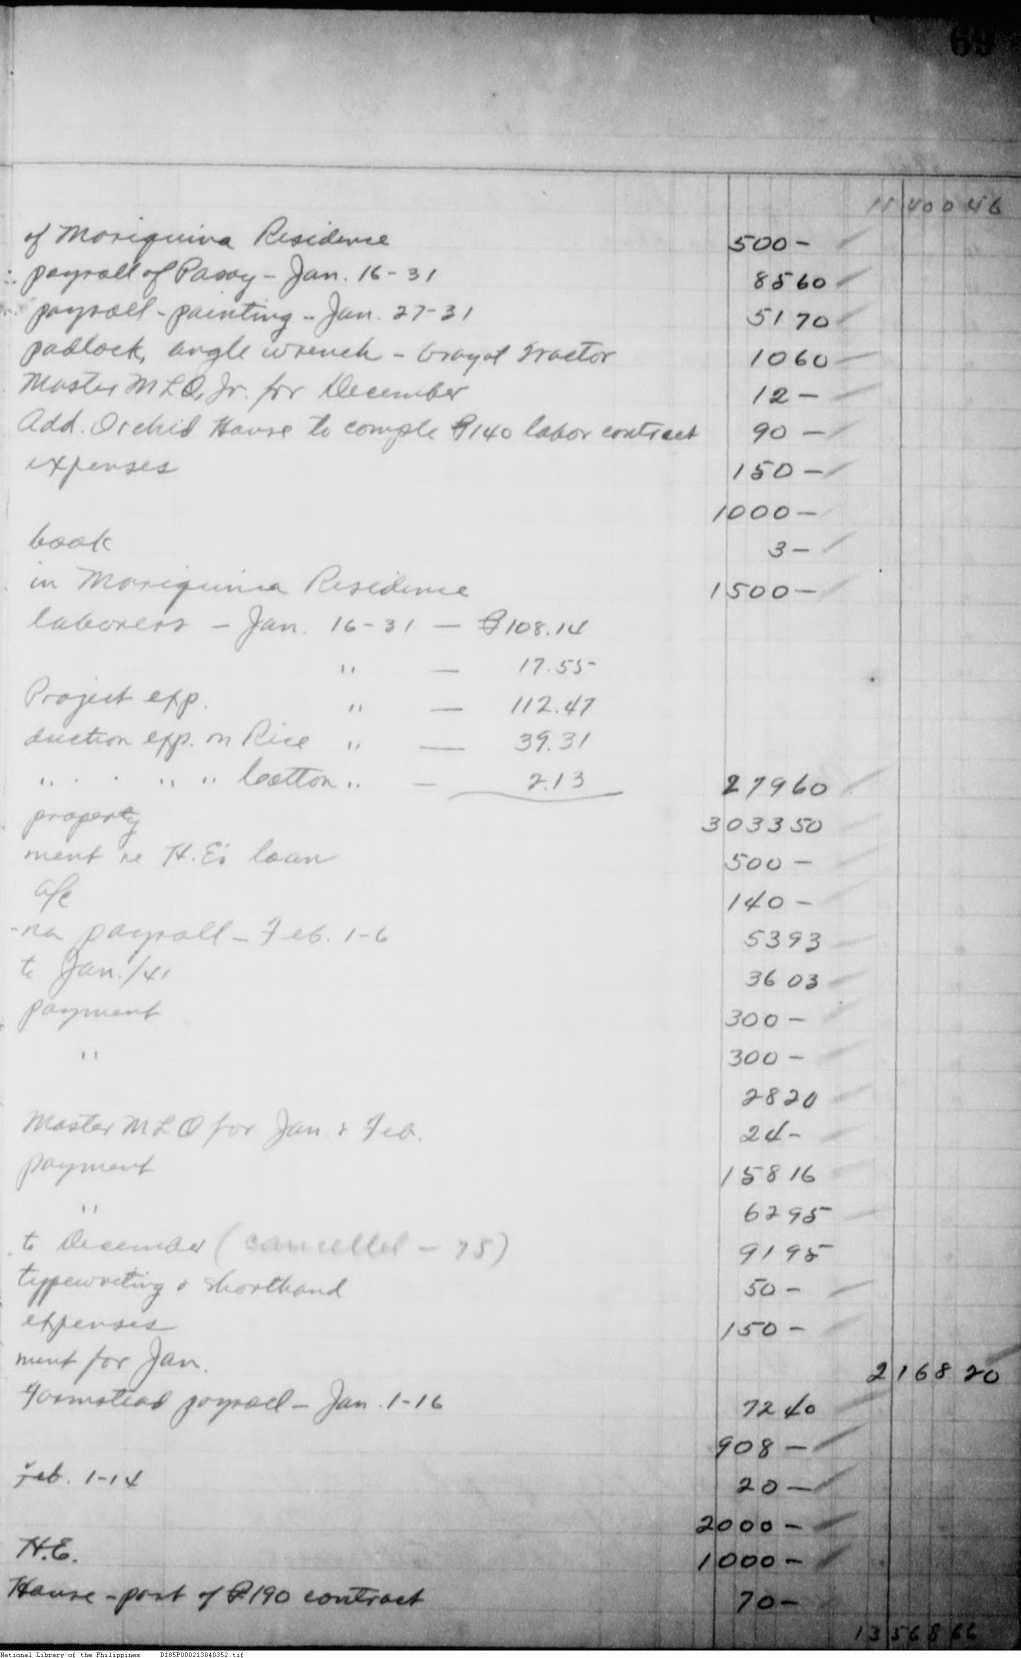 69
11 400 46
of Mariquina Residence 500 -
payroll of Pasay - Jan. 16-31 85 60
payroll - painting - Jan. 27-31 51 70
padlock, angle wrench - Grayol Tractor 10 60
Master MLQ, Jr. for December 12 -
Add. Orchid House to comple ₱140 labor contract 90 -
expenses 150 -
1000 -
book 3 -
in Mariquina Residence 1500 -
laborers - Jan. 16-31 - ₱108.14
" - 17.55
Project exp. " - 112.47
duction exp. on Rice " - 39.31
" " " Cotton " - 2.13 279 60
property 3033 50
ment re H.E's loan 500 -
a/c 140 -
-na payroll - Feb. 1-6 53 93
to Jan./41 36 03
payment 300 -
" 300 -
28 20
Master MLQ for Jan & Feb. 24 -
payment 158 16
" 62 95
to December (cancelled - 75) 91 95
typewriting & shorthand 50 -
expenses 150 -
ment for Jan. 2168 20
Farmstead payroll - Jan. 1-16 72 40
908 -
Feb. 1-14 20 -
2000 -
H.E. 1000 -
House - part of ₱190 contract 70 -
13568 66
National Library of the Philippines D185P000213040352.tif